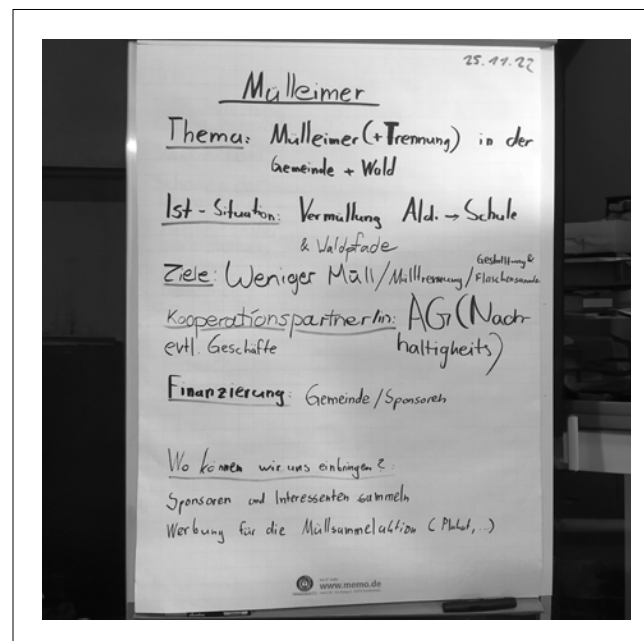 25.11.22
Mülleimer
Thema: Mülleimer (+Trennung) in der
Gemeinde + Wald
Ist-Situation: Vermüllung Ald. → Schule
& Waldpfade
Ziele: Weniger Müll/Mülltrennung/Gestaltung &
Flaschensammler
Kooperationspartner/in: AG (Nach-
evtl. Geschäfte haltigkeits)
Finanzierung: Gemeinde/Sponsoren
Wo können wir uns einbringen?:
Sponsoren und Interessenten sammeln
Werbung für die Müllsammelaktion (Plakat,...)
www.memo.de